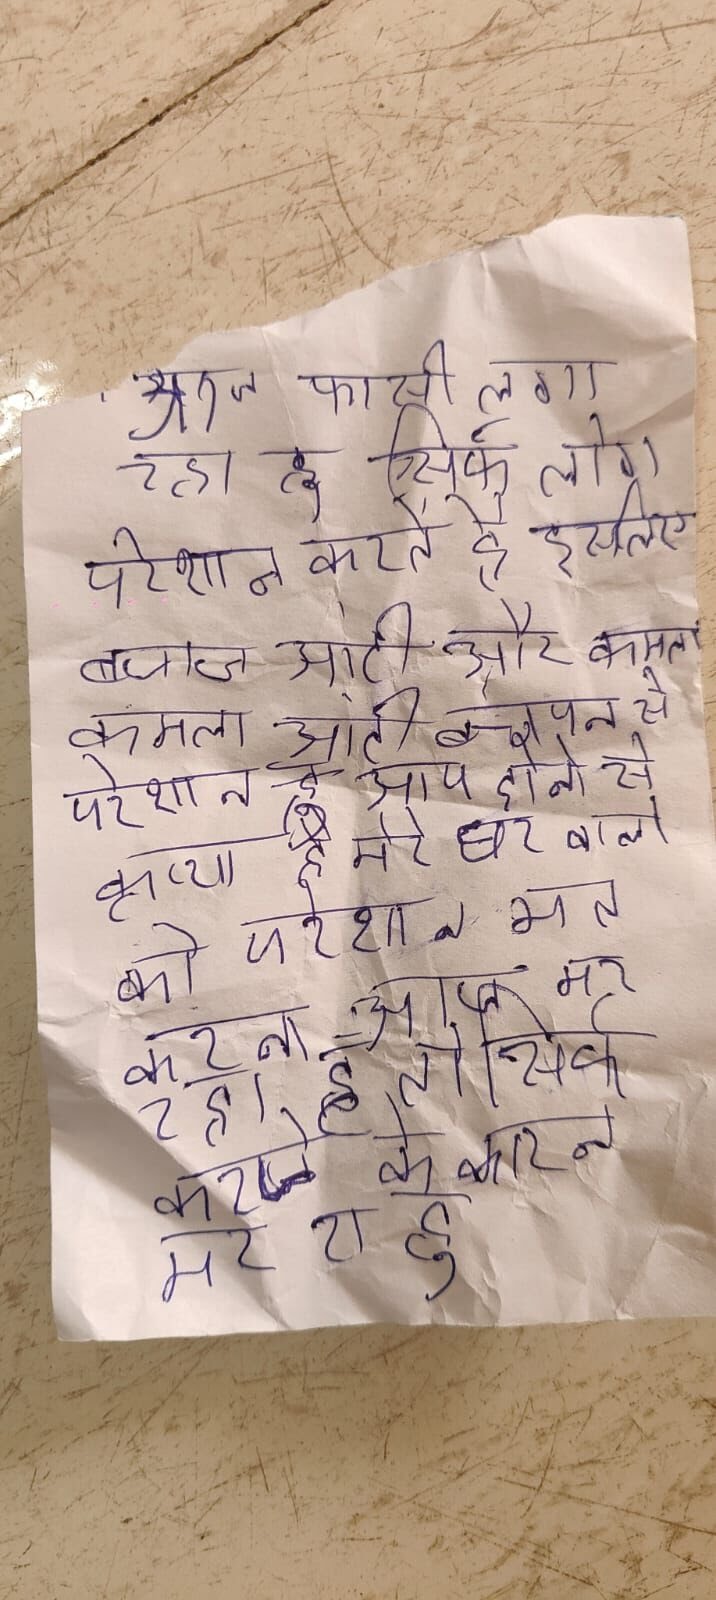 आज फासी लगा
रहा हु सिर्फ लोग
परेशान करते है इसलिए
बजाज आंटी और कमला
कमला आंटी बचपन से
परेशान हु आप दोनो से
कृप्या है मेरे घर वालो
को परेशान मत
करना आज मर
रहा हु तो सिर्फ
करजे के कारन
मर रा हु